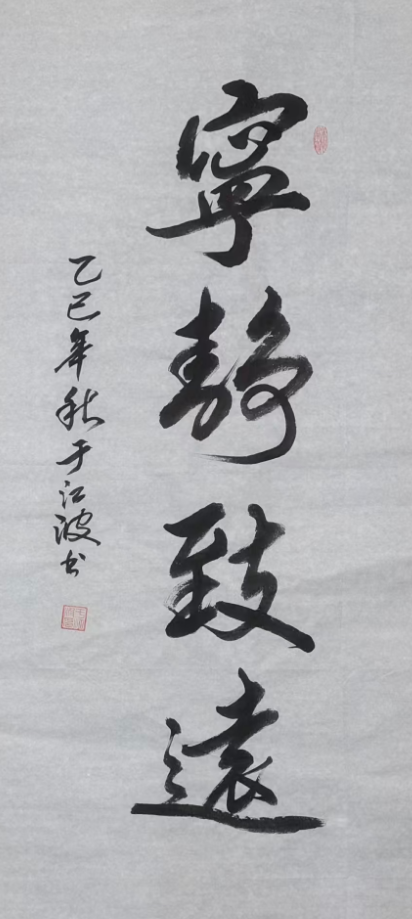 寧靜致遠
乙巳年秋于江波书